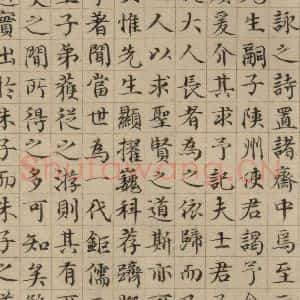 詠之詩置諸齋中
生嗣子陝州使君謁予
爰介其求予記夫士君
大人長者為之依歸而
人以求聖賢之道斯亦
惟先生顯擢巍科荐躋
著聞當世為一代鉅儒
子弟獲從之游則其有
之間所得之多可知矣
實出於朱子而朱子之
Shufawang.CN